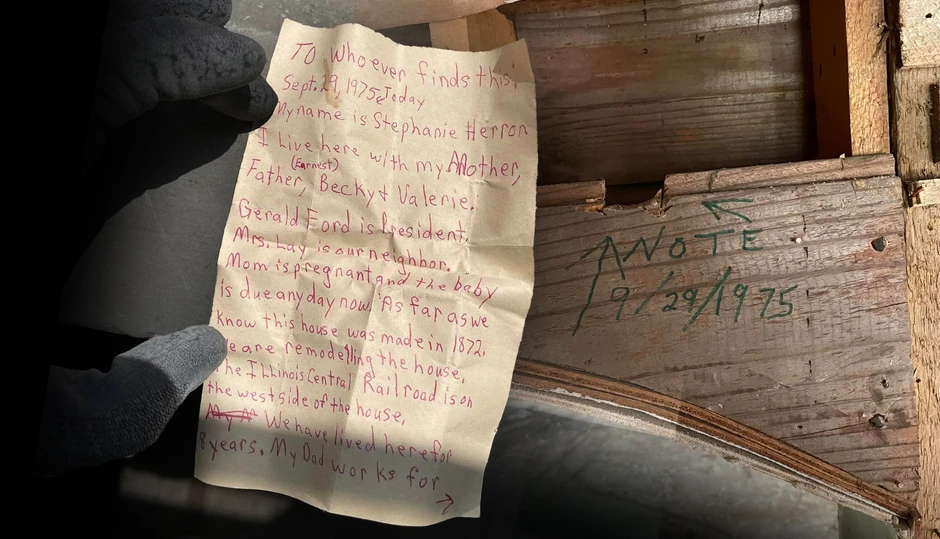 TO Whoever finds this,
Sept. 29, 1975, Today
My name is Stephanie Herron
I Live here with my Mother,
(Earnest)
Father, Becky & Valerie.
Gerald Ford is President.
Mrs. Lay is our neighbor.
Mom is pregnant and the baby
is due any day now. As far as we
know this house was made in 1872.
We are remodelling the house,
The Illinois Central Railroad is on
the west side of the house,
We have lived here for
8 years. My Dad works for
→
←
↑ NOTE
9/29/1975